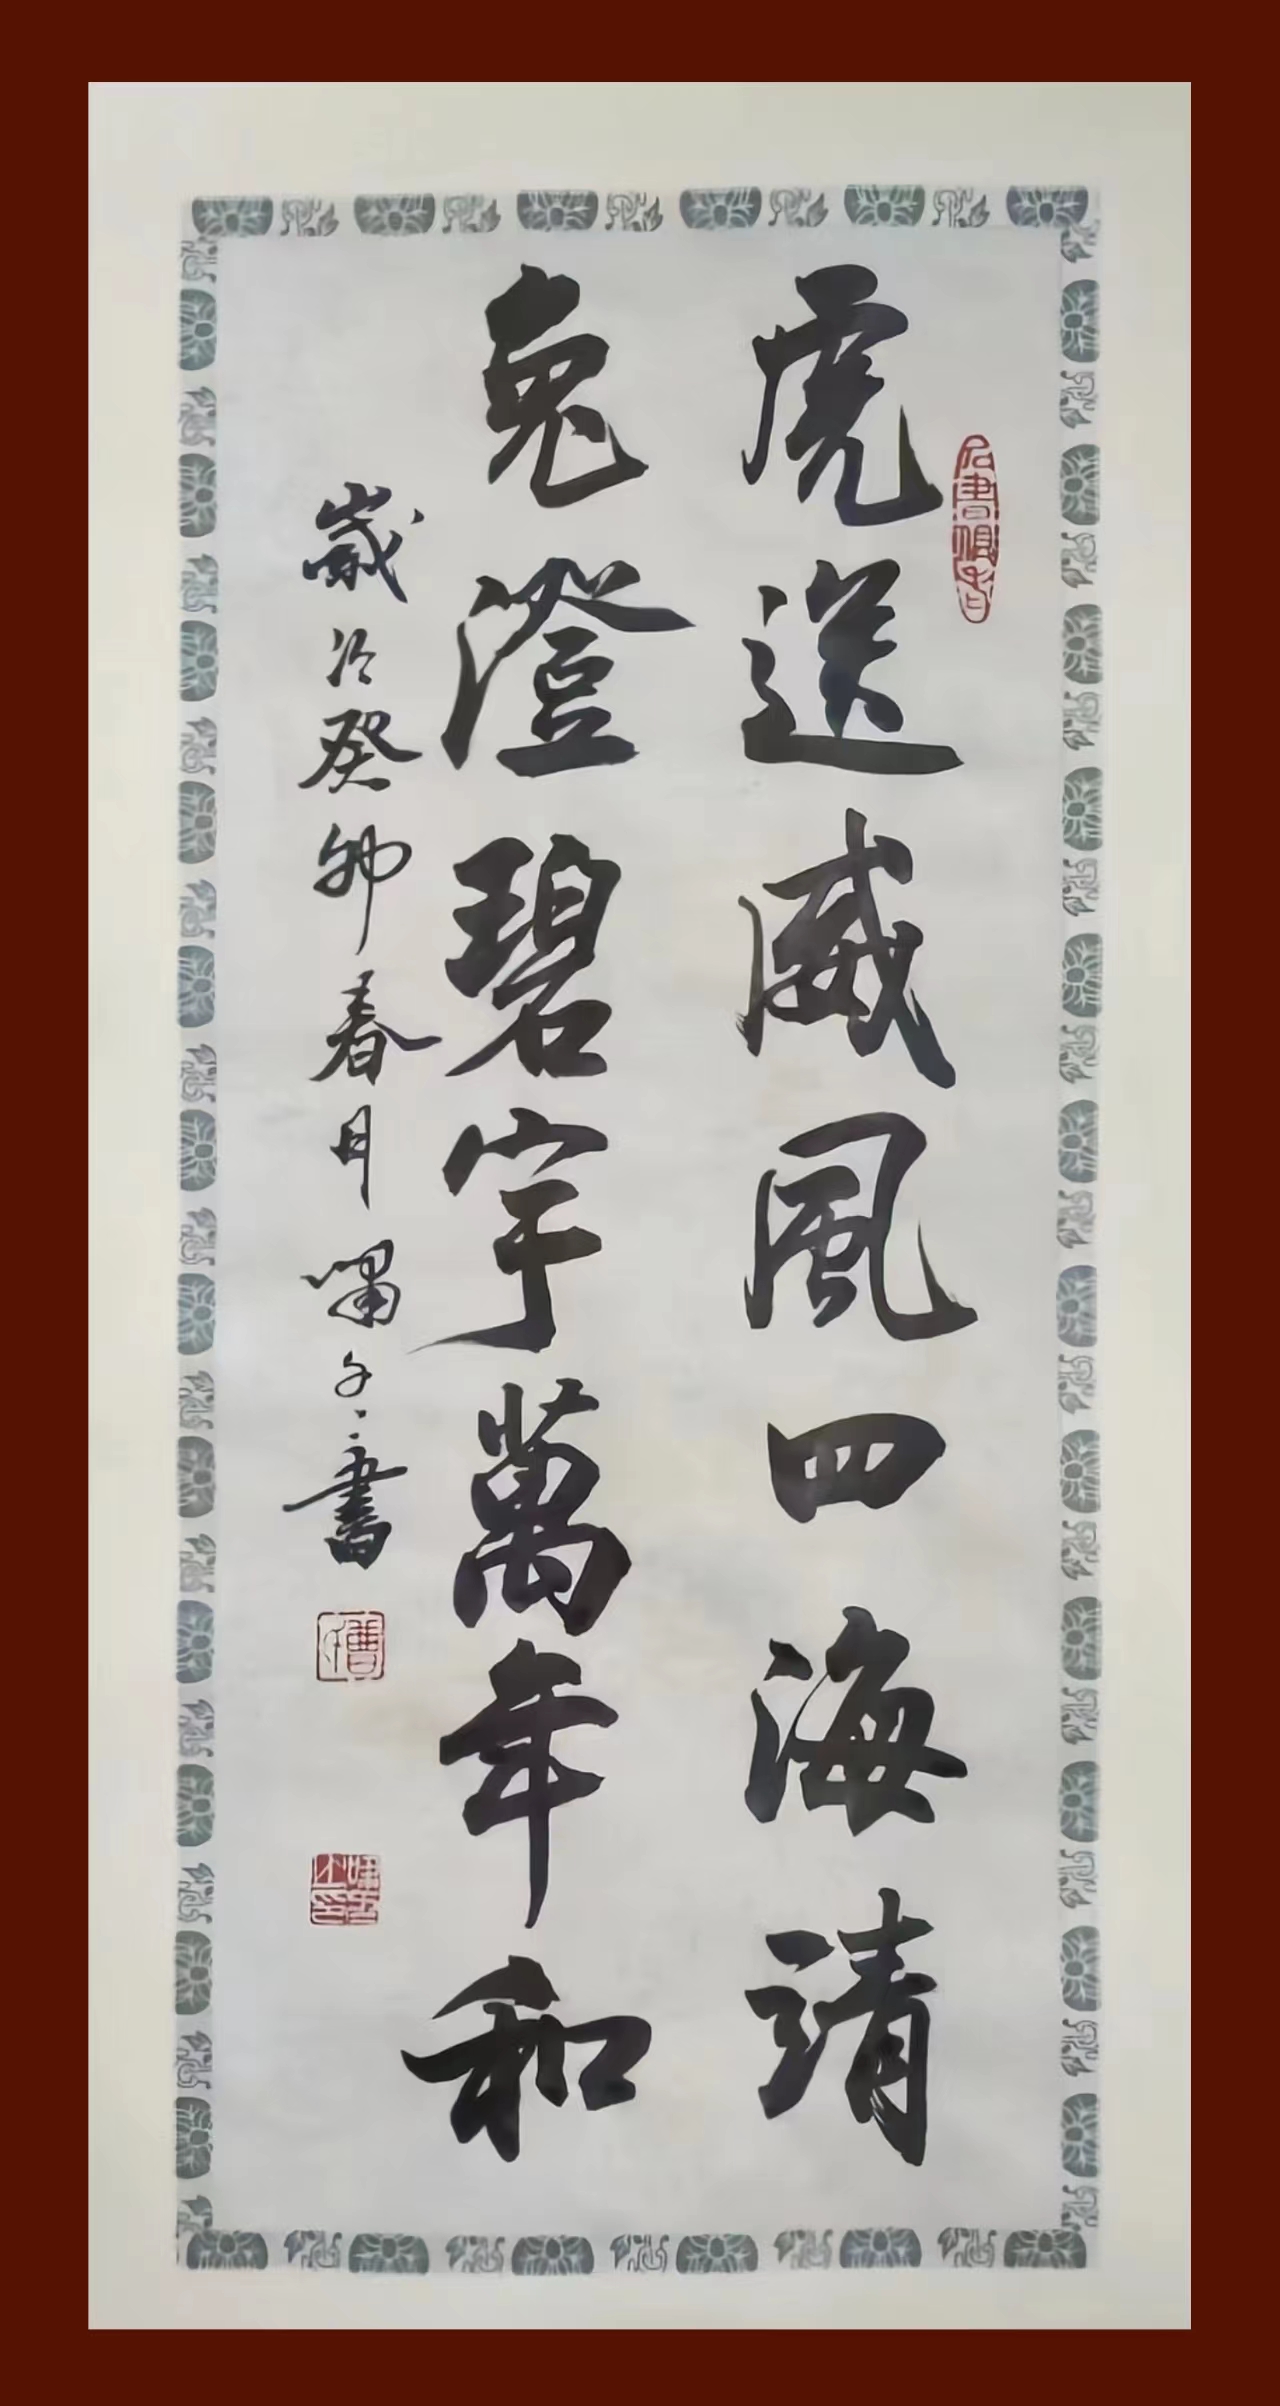 虎送威風四海清
兔澄碧宇萬年和
歲次癸卯春月嘯山書